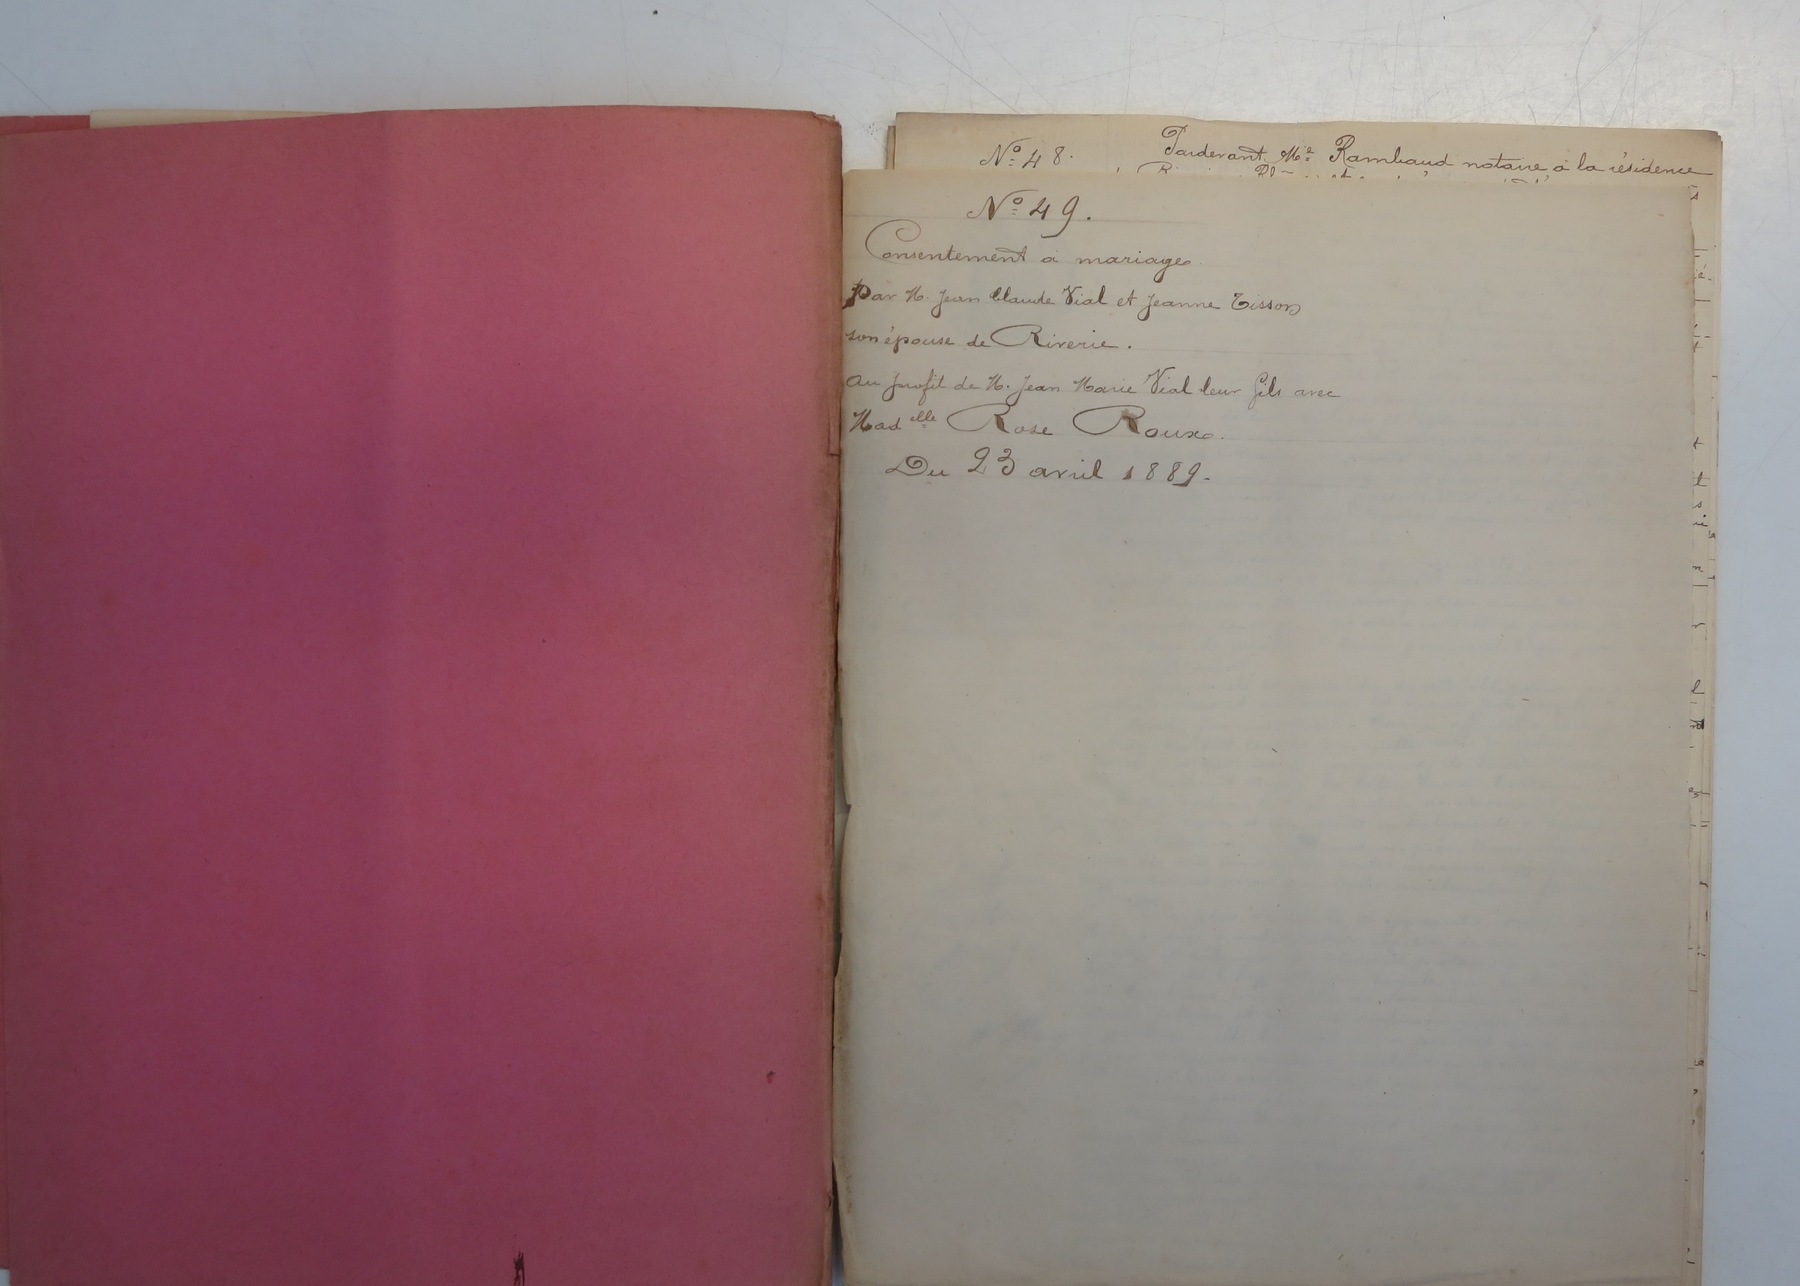 Nº 48.
Pardevant Mᵉ Rambaud notaire à la résidence
Nº 49.
Consentement à mariage
Par M. Jean Claude Vial et Jeanne Tisson
son épouse de Riverie.
Au profit de M. Jean Marie Vial leur fils avec
Madelle Rose Roux.
Du 23 avril 1889.